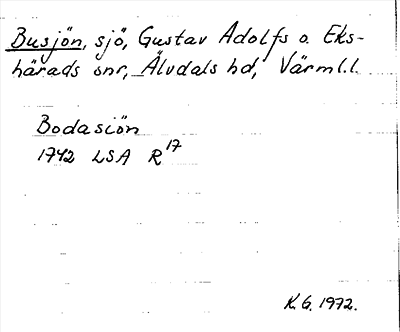 Busjön, sjö, Gustav Adolfs o. Eks-
härads snr, Älvdals hd, Värml.l.
Bodasiön
1742 LSA R17
K.G. 1972.